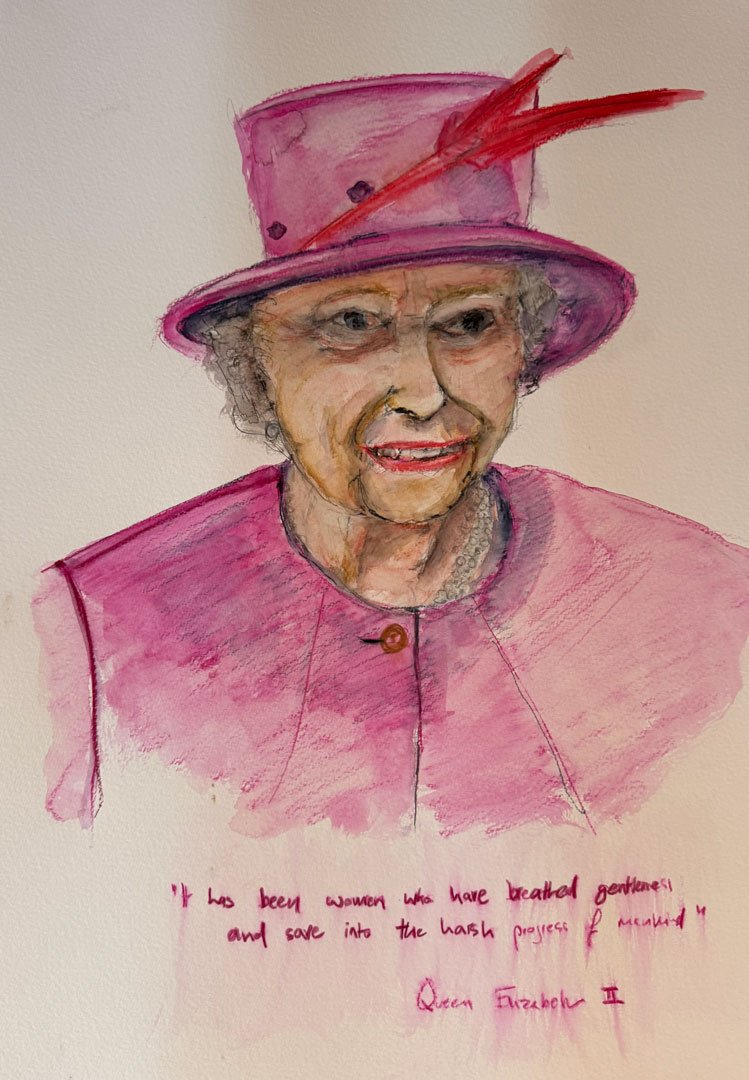 "It has been women who have breathed gentleness
and save into the harsh progress of mankind"
Queen Elizabeth II